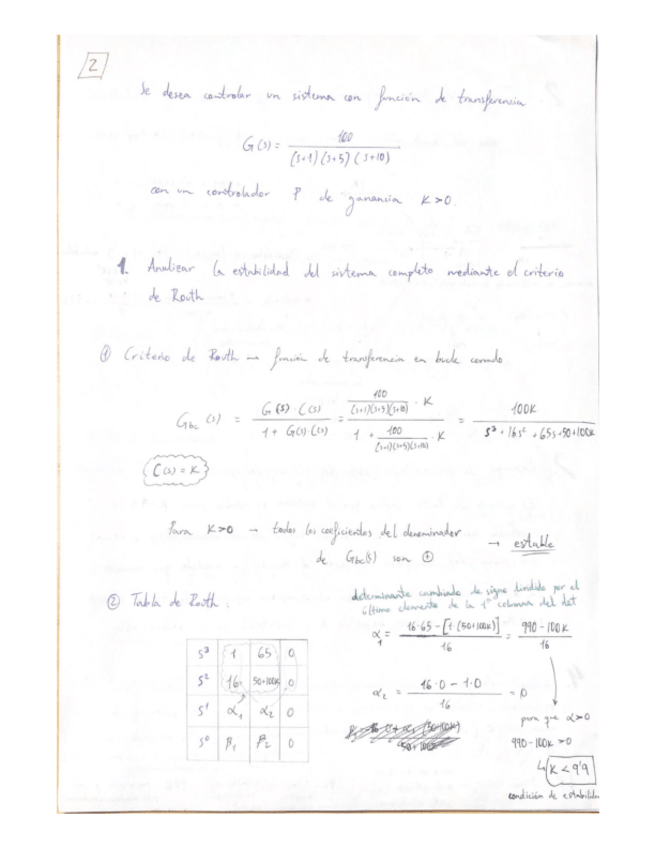 2
Se desea controlar un sistema con función de transferencia
G(s) = 100 / (s+1)(s+5)(s+10)
con un controlador P de ganancia K>0.
1. Analizar la estabilidad del sistema completo mediante el criterio
de Routh
① Criterio de Routh → función de transferencia en bucle cerrado
Gbc(s) = G(s)·C(s) / 1 + G(s)·C(s) = 100/(s+1)(s+5)(s+10) · K / 1 + 100/(s+1)(s+5)(s+10) · K = 100K / s³+16s²+65s+50+100K
C(s) = K
Para K>0 → todos los coeficientes del denominador
de Gbc(s) son ⊕ → estable
② Tabla de Routh:
s³ 1 65 0
s² 16 50+100K 0
s¹ α₁ α₂ 0
s⁰ β₁ β₂ 0
determinante cambiado de signo dividido por el
último elemento de la 1ª columna del det
α₁ = 16·65-[1·(50+100K)] / 16 = 990-100K / 16
α₂ = 16·0 - 1·0 / 16 = 0
para que α>0
990-100K >0
↳ K < 9'9
condición de estabilida